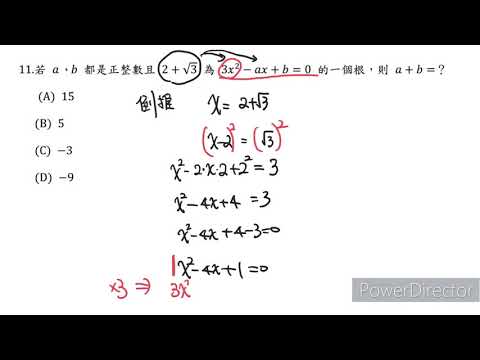 11.若 a，b 都是正整數且 2+√3 為 3x²−ax+b=0 的一個根，則 a+b=?
(A) 15
(B) 5
(C) −3
(D) −9
倒推 x = 2+√3
(x−2)² = (√3)²
x²−2·x·2+2² = 3
x²−4x+4 = 3
x²−4x+4−3=0
1x²−4x+1=0
x3 ⇒ 3x²
PowerDirector